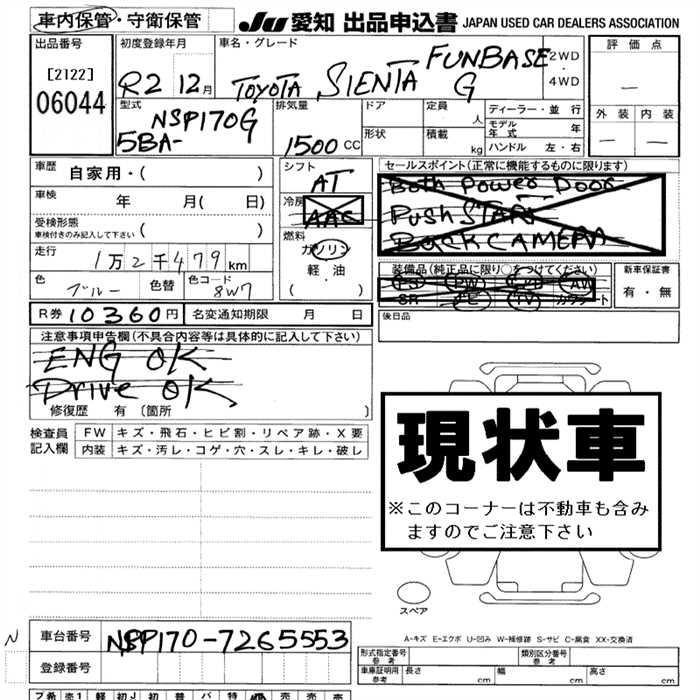 車内保管・守衛保管
JU 愛知 出品申込書 JAPAN USED CAR DEALERS ASSOCIATION
出品番号 初度登録年月 車名・グレード 評価点
[2122]
06044
R2 12月
TOYOTA SIENTA FUNBASE G
2WD
・
4WD
—
型式 排気量 ドア 定員 人 ディーラー・並行
NSP170G
5BA-
1500 CC
形状 積載 kg
モデル年式 年
ハンドル 左・右
外装 内装
— —
車歴 自家用・( )
車検 年 月( 日)
受検形態
車検付きのみ記入して下さい ( )
走行 1万2千479km
色 ブルー 色替 色コード 8W7
シフト
AT
冷房
AAC
燃料
ガソリン
・
軽油
( )
セールスポイント(正常に機能するものに限ります)
Both Power Door
Push START
BACK CAMERA
装備品(純正品に限り○をつけてください)
PS PW AW
SR TV カワシート
新車保証書
有・無
R券 10360円 名変通知期限 月 日
後日品
注意事項申告欄(不具合内容等は具体的に記入して下さい)
ENG OK
Drive OK
修復歴 有 〔箇所 〕
検査員記入欄
FW キズ・飛石・ヒビ割・リペア跡・X要
内装 キズ・汚レ・コゲ・穴・スレ・キレ・破レ
現状車
※このコーナーは不動車も含み
ますのでご注意下さい
スペア
A-キズ E-エクボ U-凹み W-補修跡 S-サビ C-腐食 XX-交換済
N
車台番号 NSP170-7265553
登録番号
形式指定番号 参考 類別区分番号 参考
車庫証明用 参考 長さ cm 幅 cm 高さ cm